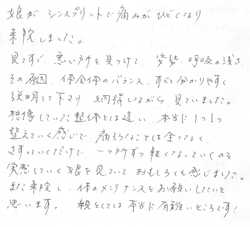 娘が シンスプリントで痛みがひどくなり
来院しました。
見てすぐ 悪い所を見つけて 姿勢 呼吸の浅さ
その原因 体全体のバランス、すごく分かりやすく
説明して下さり 納得しながら 見ていました。
想像していた整体とは違い 本当に 1つ1つ
整えていく感じで 痛そうなことは全くなく
さすっていくだけで 一つ一つずつ軽くなっていくのを
実感していく娘を見ていて おもしろくも感じました。
また来院し 体のメンテナンスをお願いしたいと
思います。 親としては 本当に有難いところです!